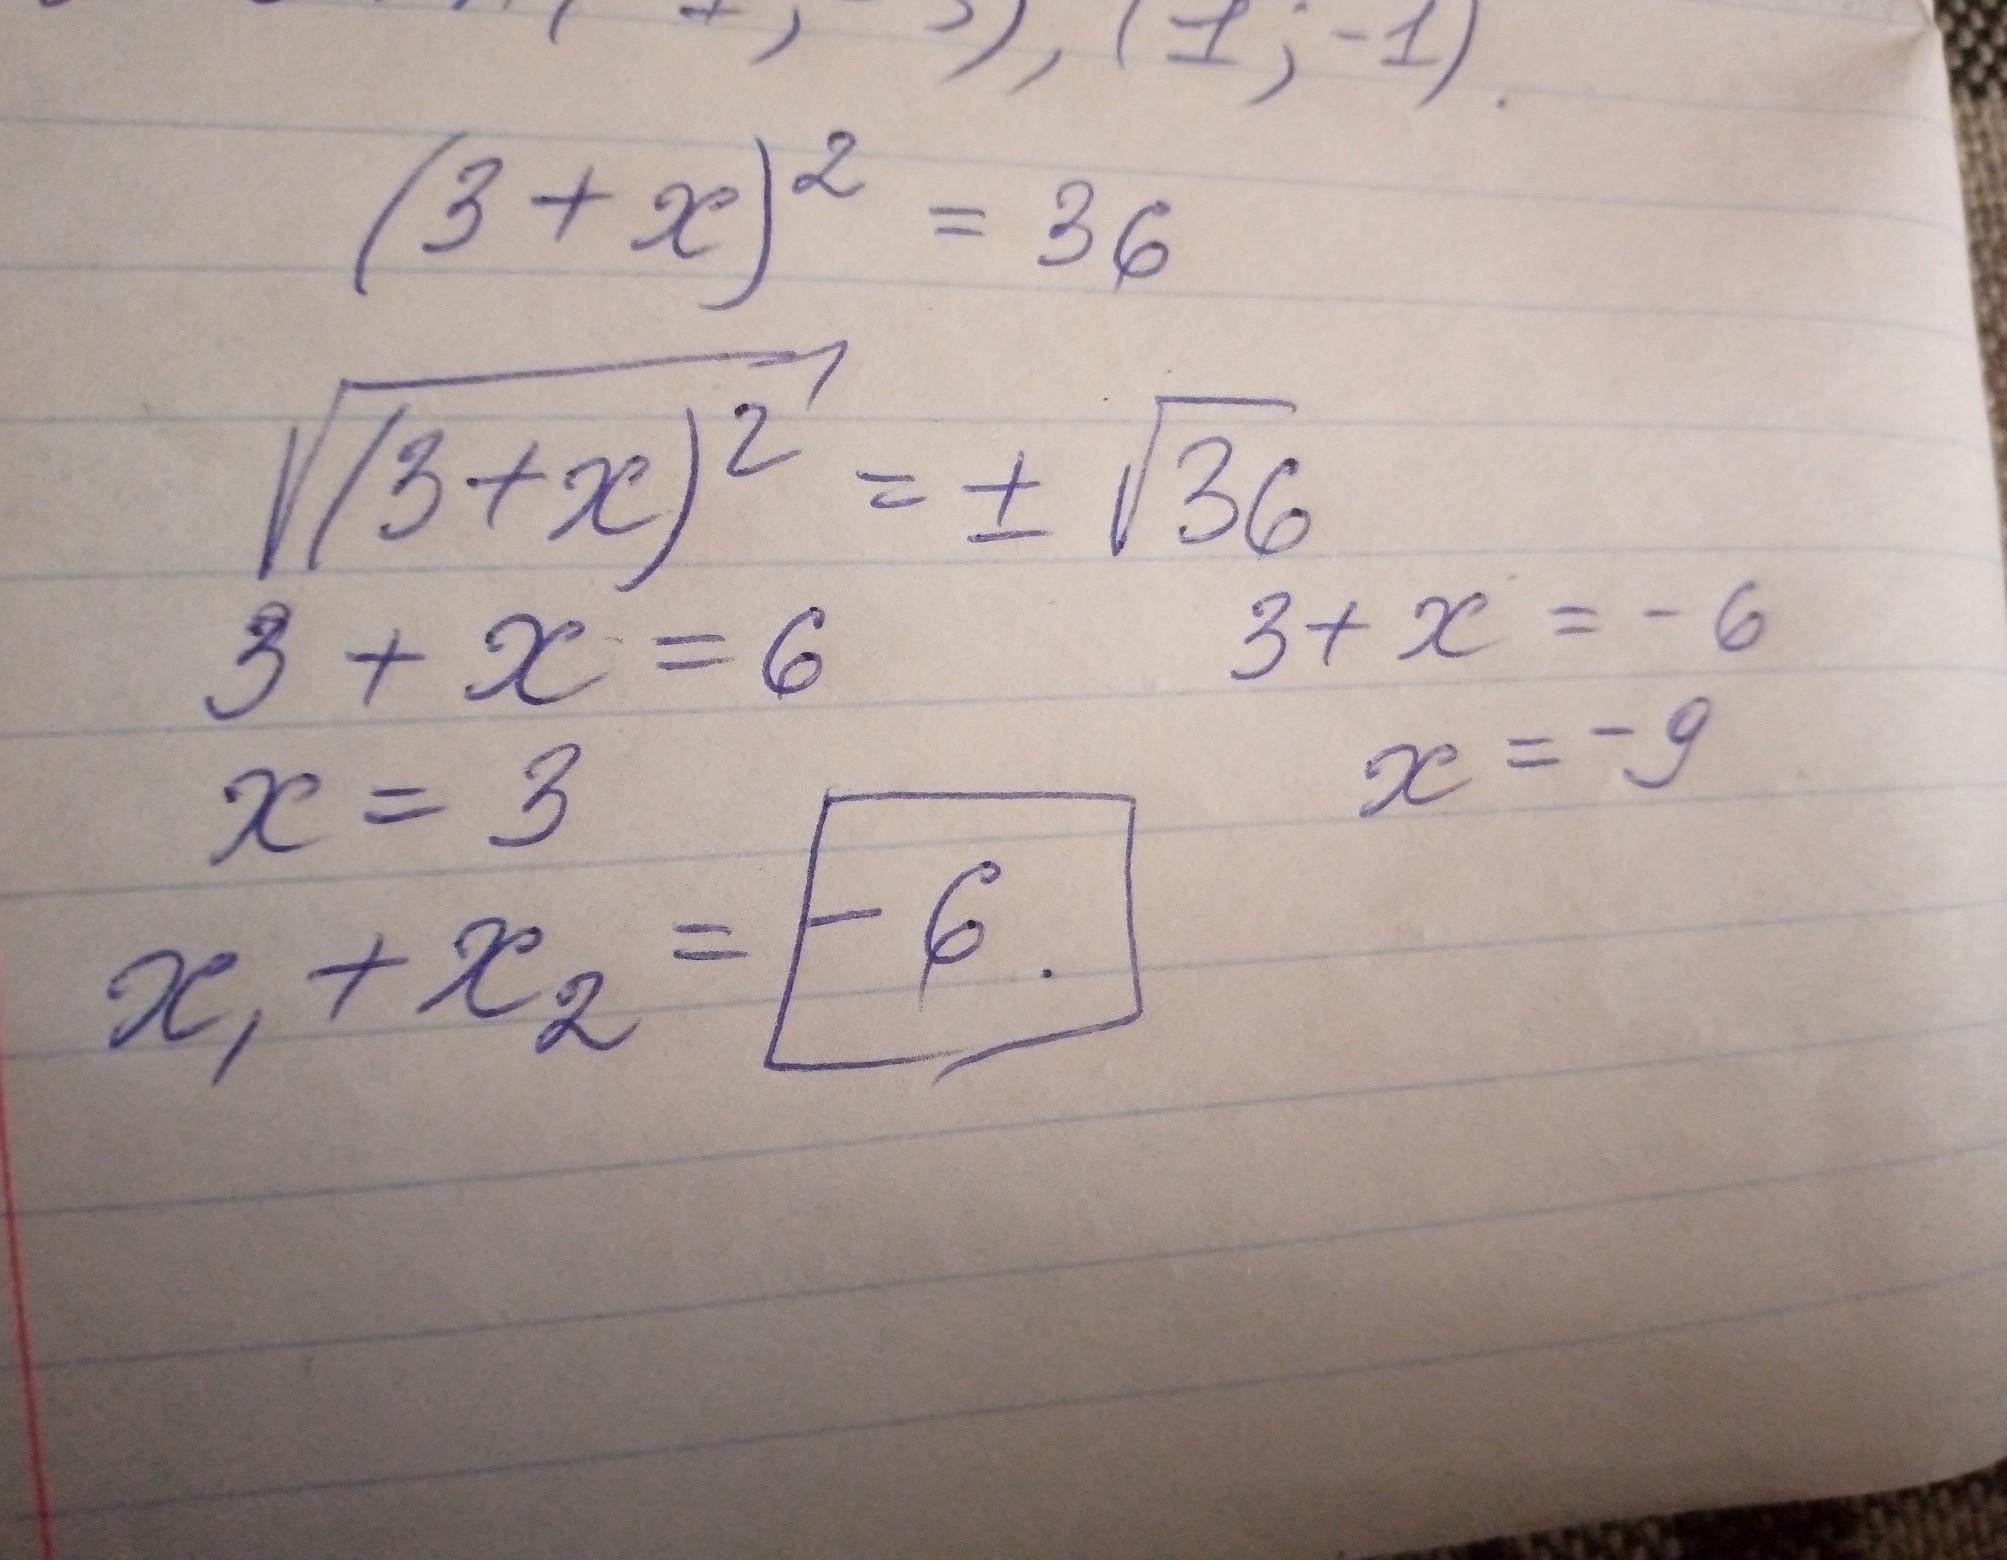 (1; -1).
(3 + x)² = 36
√(3+x)² = ± √36
3 + x = 6 3 + x = - 6
x = 3 x = - 9
x₁ + x₂ = - 6.